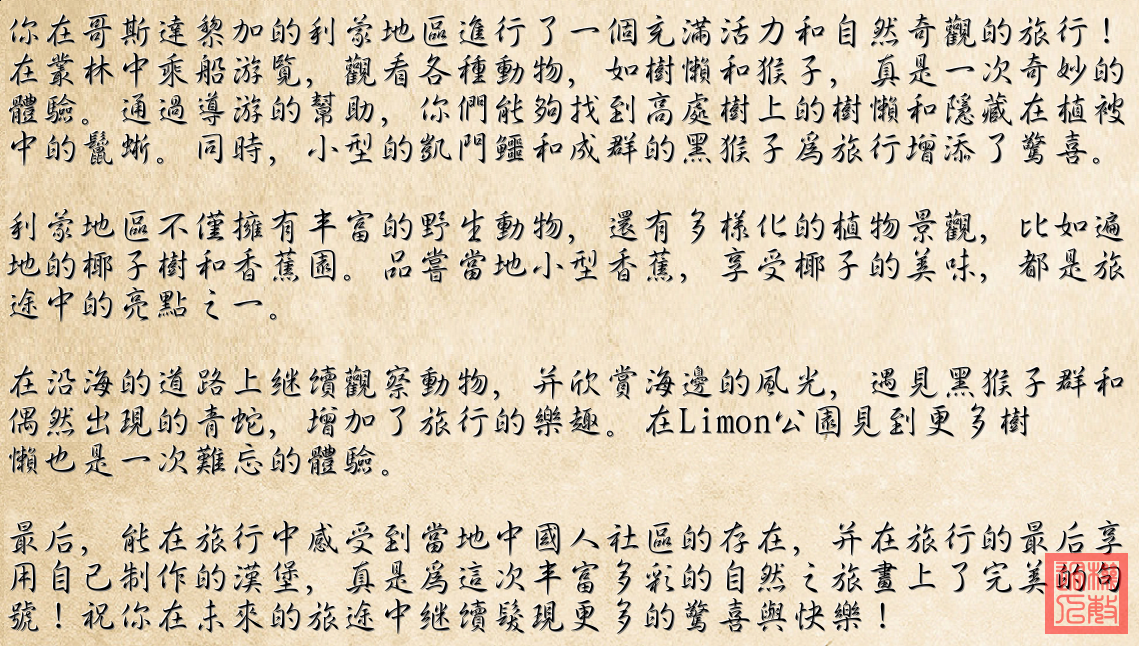 你在哥斯達黎加的利蒙地區進行了一個充滿活力和自然奇觀的旅行！
在叢林中乘船游覽，觀看各種動物，如樹懶和猴子，真是一次奇妙的
體驗。通過導游的幫助，你們能夠找到高處樹上的樹懶和隱藏在植被
中的鬣蜥。同時，小型的凱門鱷和成群的黑猴子爲旅行增添了驚喜。
利蒙地區不僅擁有丰富的野生動物，還有多樣化的植物景觀，比如遍
地的椰子樹和香蕉園。品嘗當地小型香蕉，享受椰子的美味，都是旅
途中的亮點之一。
在沿海的道路上继續觀察動物，并欣賞海邊的風光，遇見黑猴子群和
偶然出現的青蛇，增加了旅行的樂趣。在Limon公園見到更多樹
懶也是一次難忘的體驗。
最后，能在旅行中感受到當地中國人社區的存在，并在旅行的最后享
用自己制作的漢堡，真是爲這次丰富多彩的自然之旅畫上了完美的句
號！祝你在未來的旅途中继續髮現更多的驚喜與快樂！